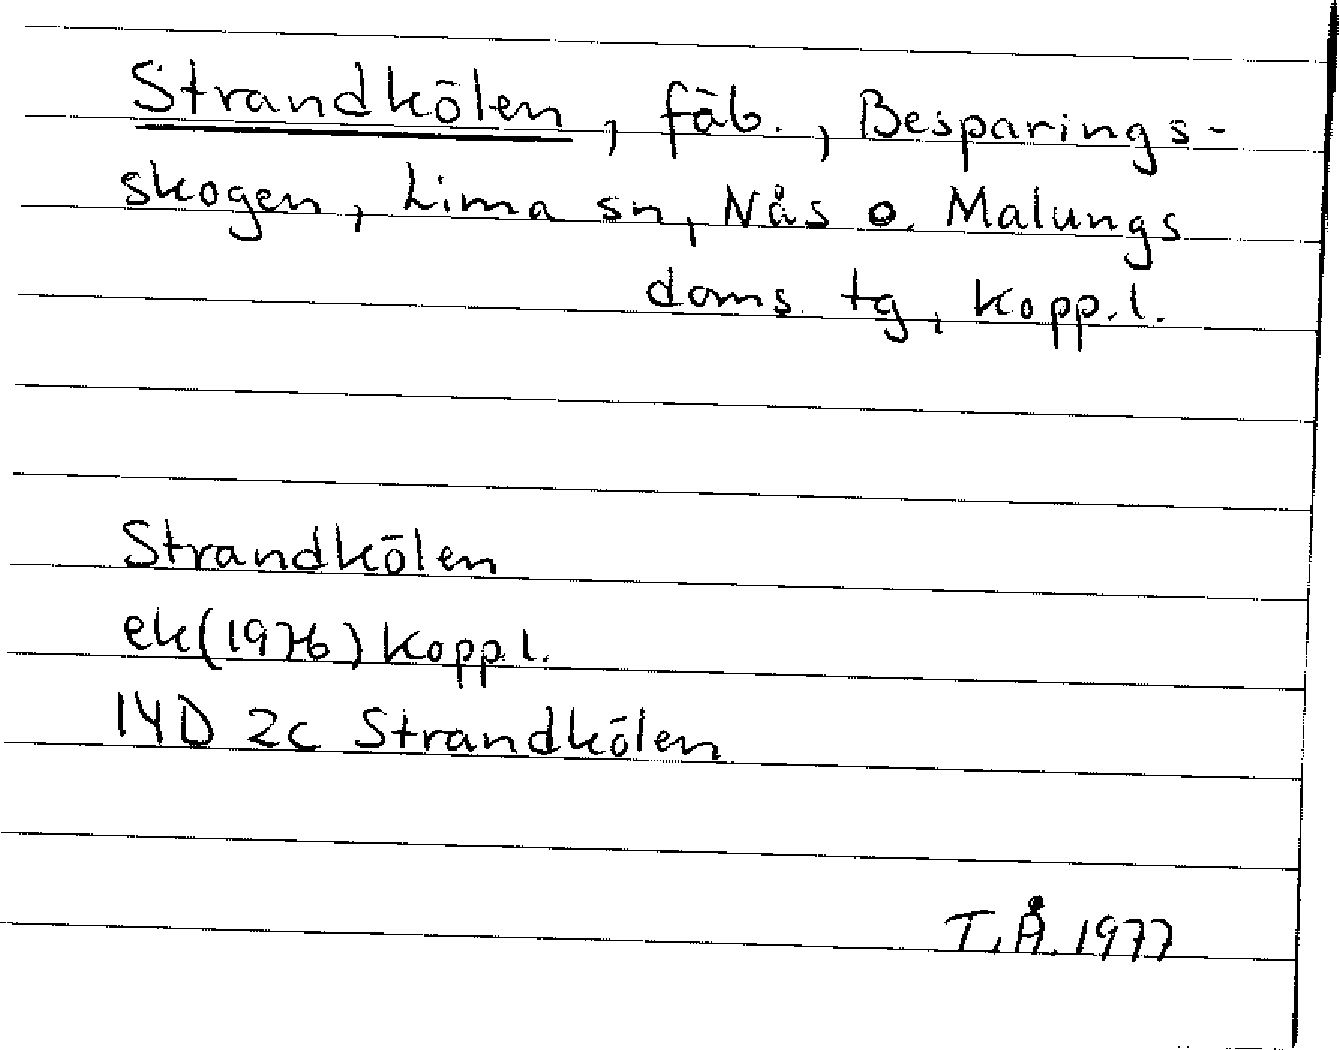 Strandkölen, fäb., Besparings-
skogen, Lima sn, Nås o. Malungs
doms. tg, Kopp.l.
Strandkölen
ek(1976) Kopp.l.
14D 2c Strandkölen
T.Å. 1977